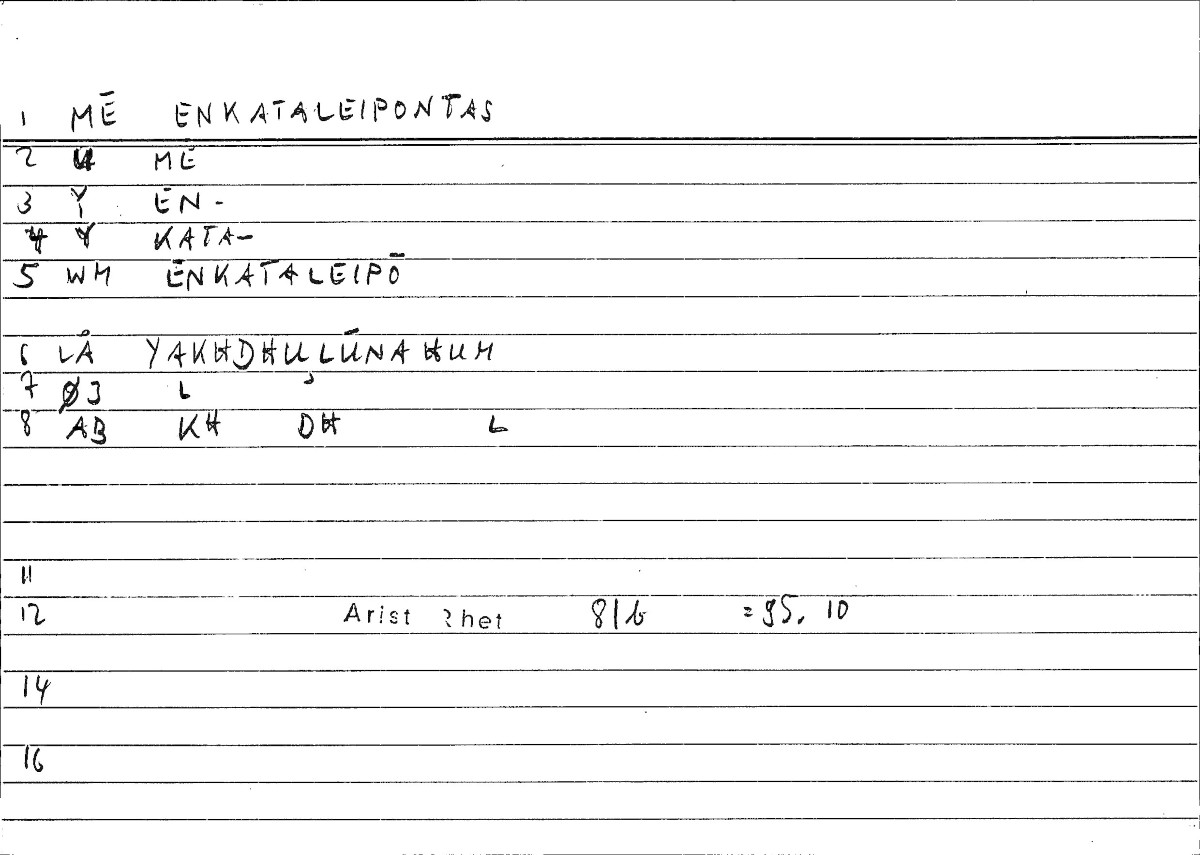 1 MĒ ENKATALEIPONTAS
2 4 MĒ
3 Y EN-
4 Y KATA-
5 WM ENKATALEIPŌ
6 LÅ YAKHDHULŪNAHUM
7 ØJ L
8 AB KH DH L
11
12 Arist Rhet 81b =95, 10
14
16